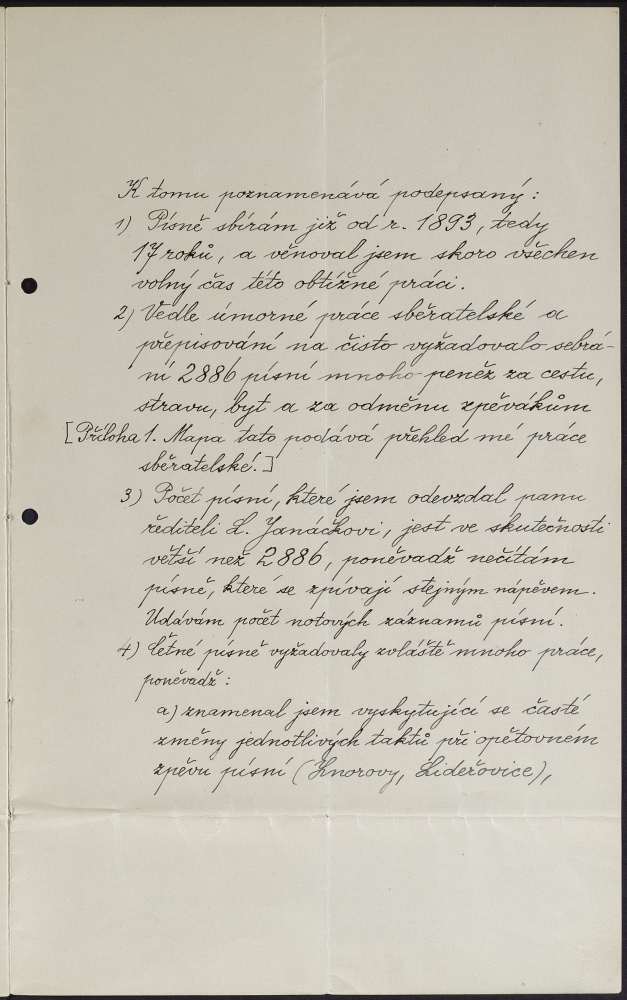 K tomu poznamenává podepsaný:
1) Písně sbírám již od r. 1893, tedy
17 roků, a věnoval jsem skoro všechen
volný čas této obtížné práci.
2) Vedle úmorné práce sběratelské a
přepisování na čisto vyžadovalo sebrá-
ní 2886 písní mnoho peněz za cestu,
stravu, byt a za odměnu zpěvákům
[Příloha 1. Mapa tato podává přehled mé práce
sběratelské.]
3) Počet písní, které jsem odevzdal panu
řediteli L. Janáčkovi, jest ve skutečnosti
větší než 2886, poněvadž nečítám
písně, které se zpívají stejným nápěvem.
Udávám počet notových záznamů písní.
4) Četné písně vyžadovaly zvláště mnoho práce,
poněvadž:
a) znamenal jsem vyskytující se časté
změny jednotlivých taktů při opětovném
zpěvu písní (Knorovy, Lideřovice),